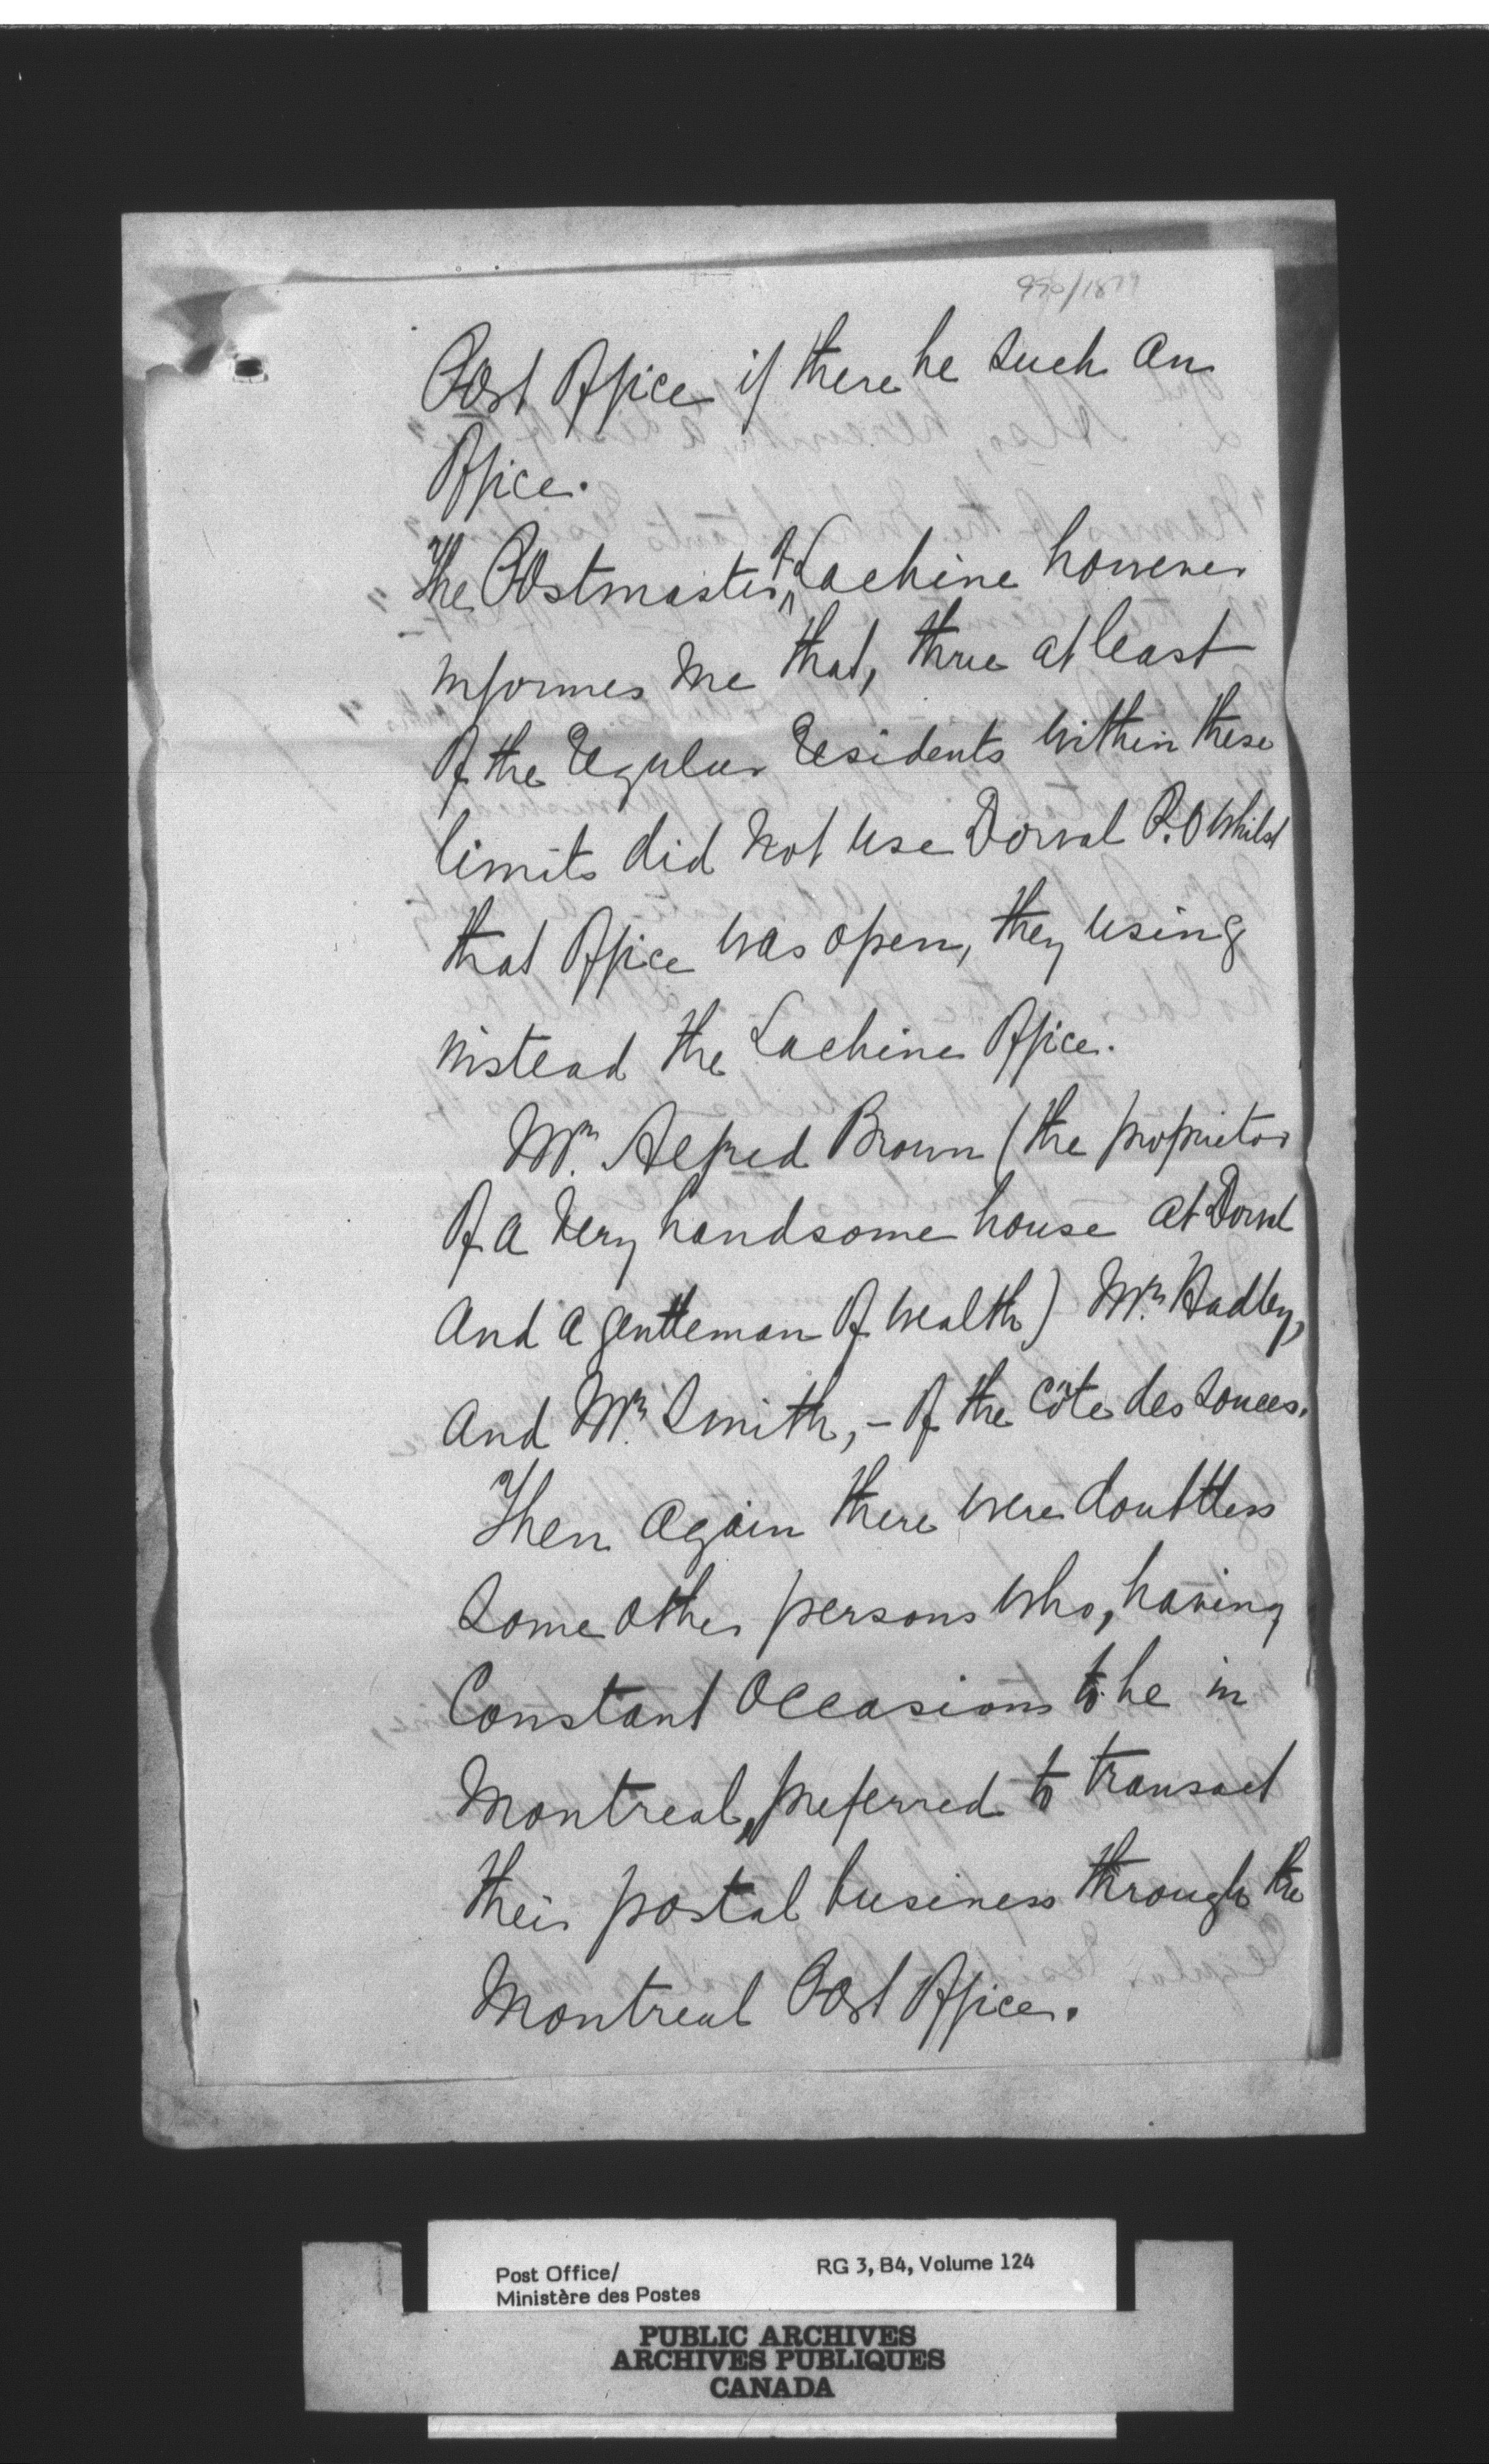 990/1879
Post Office if there be such an
Office.
The Postmaster at Lachine however
informes me that, three at least
of the regular residents within these
limits did not use Dorval P.O whilst
that Office was open, they using
instead the Lachine Office.
Mr. Alfred Brown (the proprietor
of a very handsome house at Dorval
and a gentleman of wealth) Mr. Hadley,
and Mr. Smith, - of the Côte des Sources.
Then again there were doubtless
some other persons who, having
Constant occasions to be in
Montreal, preferred to transact
their postal business through the
Montreal Post Office.
Post Office/
Ministère des Postes
RG 3, B4, Volume 124
PUBLIC ARCHIVES
ARCHIVES PUBLIQUES
CANADA